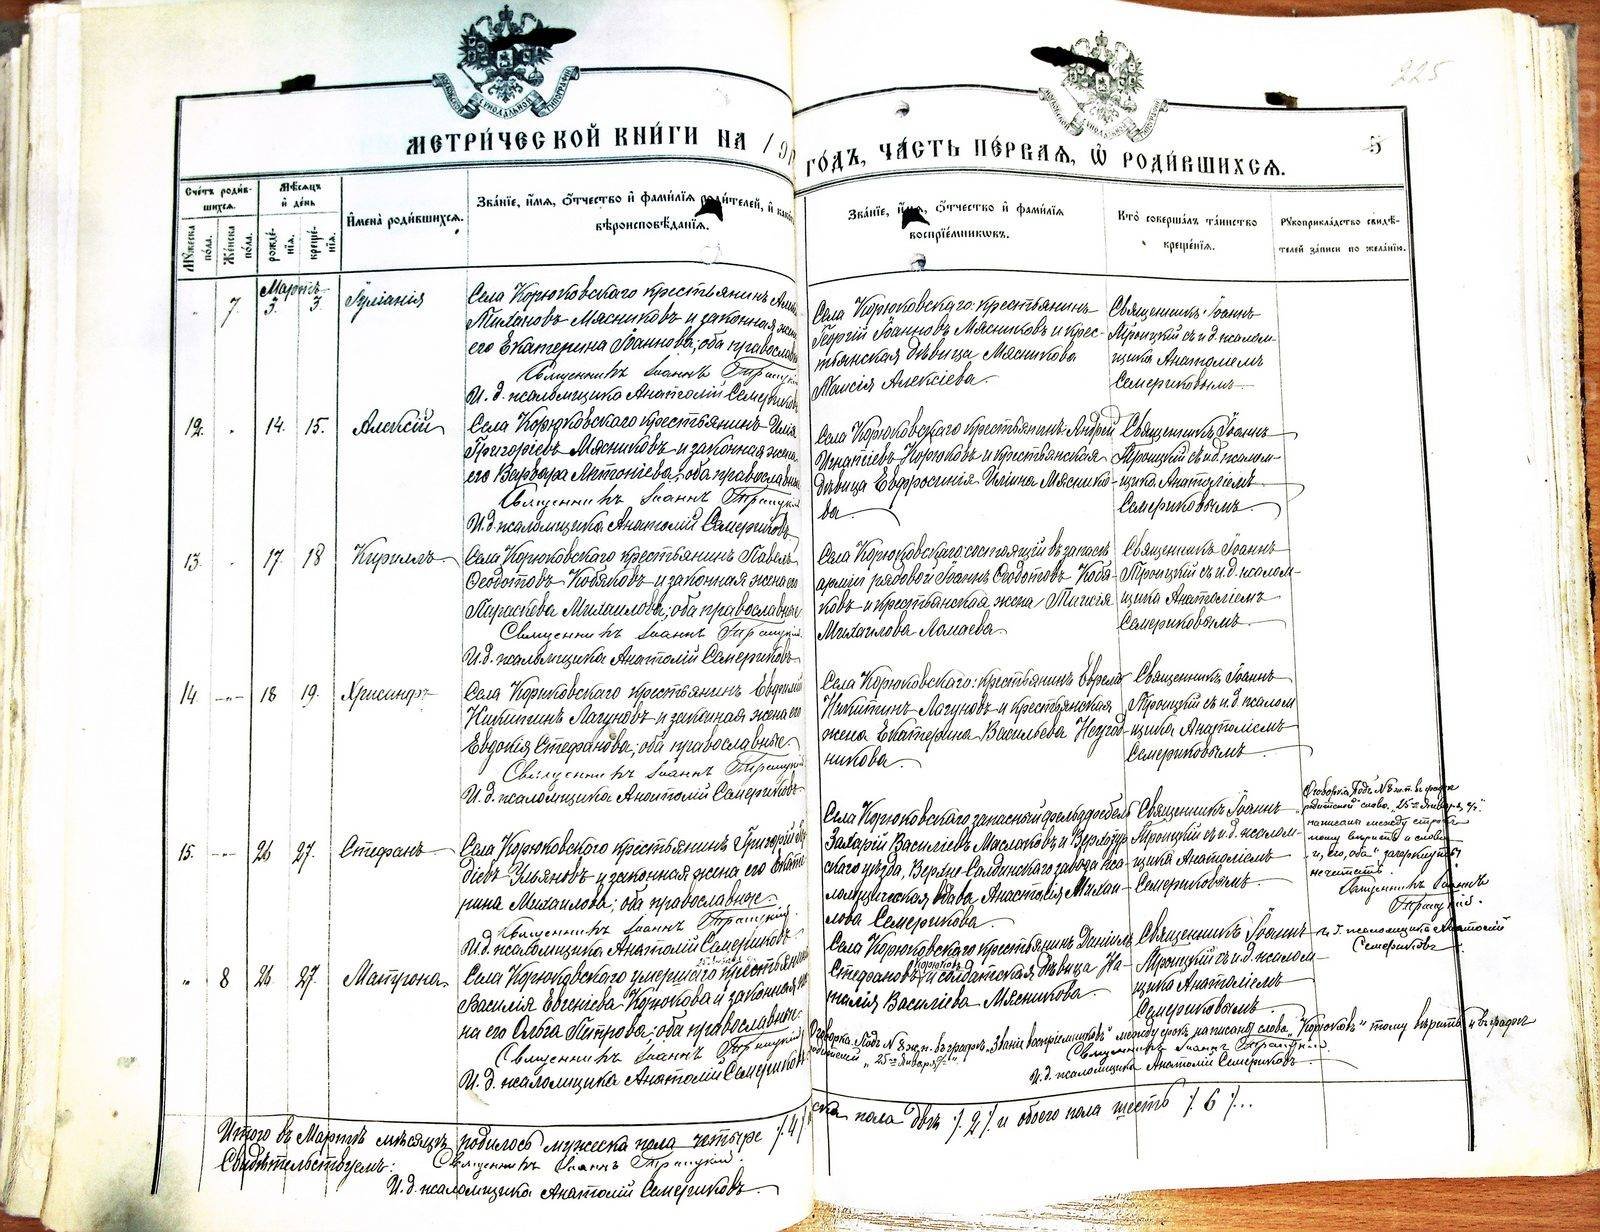 225
МЕТРИ́ЧЕСКОЙ КНИ́ГИ НА 19
ГО́ДЪ, ЧА́СТЬ ПЕ́РВАЯ, Ѡ РОДИ́ВШИХСЯ.
5
Сче́тъ роди́в-
шихся.
Мѣ́сяцъ
и де́нь
И́мена роди́вшихся.
Зва́нїе, и́мя, о́тчество и фами́лїя роди́телей, и како́
вѣроисповѣ́данїя.
Му́жеска
по́ла.
Же́нска
по́ла.
рожде́-
нїя.
креще́-
нїя.
Зва́нїе, и́мя, о́тчество и фами́лїя
воспрїе́мниковъ.
Кто̀ соверша́лъ та́инство
креще́нїя.
Рукоприкла́дство свидѣ́-
телей за́писи по жела́нїю.
7
Мартъ
3. 3.
Іуліанія
Села Корюковскаго крестьянинъ
Мясниковъ и законная жена
его Екатерина Іоаннова, оба православн
Священникъ Іоаннъ Троицкій
И. д. псаломщика Анатолій Семериковъ
Села Корюковскаго: крестьянинъ
Георгій Іоанновъ Мясниковъ и крес-
тьянская дѣвица Мясникова
Таисія Алексіева.
Священникъ Іоаннъ
Троицкій съ и. д. псалом-
щика Анатоліемъ
Семериковымъ
12. 14. 15. Алексій
Села Корюковскаго крестьянинъ Илія
Григоріевъ Мясниковъ и законная жена
его Варвара Антоніева, оба православн
Священникъ Іоаннъ Троицкій
И. д. псаломщика Анатолій Семериковъ
Села Корюковскаго крестьянинъ Андрей
Игнатіевъ Корюковъ и крестьянская
дѣвица Евфросинія Иліина Мяснико-
ва
Священникъ Іоаннъ
Троицкій съ и. д. псалом-
щика Анатоліемъ
Семериковымъ
13. 17. 18 Кириллъ
Села Корюковскаго крестьянинъ Павелъ
Ѳеодотовъ Кобяковъ и законная жена его
Параскева Михаилова, оба православные
Священникъ Іоаннъ Троицкій
И. д. псаломщика Анатолій Семериковъ
Села Корюковскаго: состоящій въ запасѣ
арміи рядовой Іоаннъ Ѳеодотовъ Кобя-
ковъ и крестьянская жена Таисія
Михаилова Ламаева
Священникъ Іоаннъ
Троицкій съ и. д. псалом-
щика Анатоліемъ
Семериковымъ
14 -„- 18 19. Хрисанфъ
Села Корюковскаго крестьянинъ
Никитинъ Лагуновъ и законная жена его
Евдокія Стефанова, оба православные.
Священникъ Іоаннъ Троицкій
И. д. псаломщика Анатолій Семериковъ
Села Корюковскаго: крестьянинъ
Никитинъ Лагуновъ и крестьянская
жена Екатерина Васильева Негод-
никова.
Священникъ Іоаннъ
Троицкій съ и. д. псалом
щика Анатоліемъ
Семериковымъ
15. -„- 26 27. Стефанъ
Села Корюковского крестьянинъ Григорій
Ульяновъ и законная жена его Екате
рина Михаилова; оба православные.
Священникъ Іоаннъ Троицкій.
И. д. псаломщика Анатолій Семериковъ
Села Корюковскаго запасный фельдфебель
Захарій Василіевъ Маслаковъ и Верхотур
скаго уѣзда, Верхне Салдинскаго завода пса
ломщическая вдова Анастасія Михаи-
лова Семерикова
Священникъ Іоаннъ
Троицкій съ и. д. псалом-
щика Анатоліемъ
Семериковымъ
Оговорка. Подъ № 8 ж. п. въ графѣ
родителей слово „25го Января с/г“
написана между строкъ
тому вѣрить и слова
„и, его, оба“ зачеркнуты
не читать.
Священникъ Іоаннъ
Троицкій.
и. д. псаломщика Анатолій
Семериковъ
„ 8 26. 27. Матрона
Села Корюковскаго умершаго крестьянина
Василія Евгеніева Корюкова и законная же
на его Ольга Петрова: оба православные:
Священникъ Іоаннъ Троицкій
И. д. псаломщика Анатолій Семериковъ
Села Корюковскаго крестьянинъ Даніилъ
Корюковъ
Стефановъ и солдатская дѣвица На-
талія Василіева Мясникова.
Священникъ Іоаннъ
Троицкій съ и. д. псалом-
щика Анатоліемъ
Семериковымъ
Оговорка. Подъ № 8 ж. п. въ графѣ „Званіе воспріемниковъ“ между строкъ написану слова „Корюковъ“ тому вѣрить и въ графѣ
родителей „25го Января с/г“.
Священникъ Іоаннъ Троицкій.
И. д. псаломщика Анатолій Семериковъ
Итого въ Мартѣ мѣсяцѣ родилось мужеска пола четыре /4/
ска пола двѣ /2/ и обоего пола шесть /6/...
Свидѣтельствуемъ: Священникъ Іоаннъ Троицкій.
И. д. псаломщика Анатолій Семериковъ.